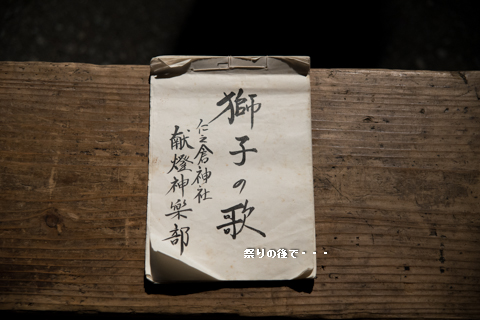 獅子の歌
仁之倉神社
献燈神楽部
祭りの後で・・・